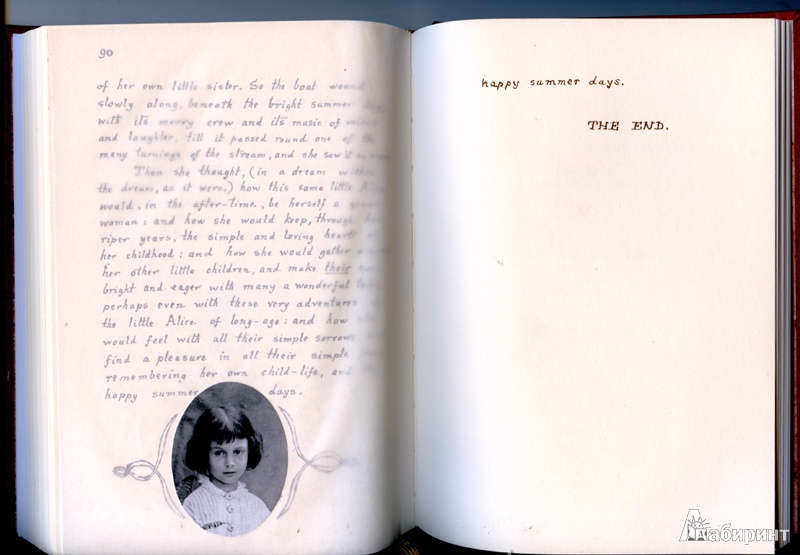 90
of her own little sister. So the boat wound
slowly along, beneath the bright summer
with its merry crew and its music of voices
and laughter, till it passed round one of the
many turnings of the stream, and she saw it no more.
Then she thought, (in a dream within
the dream, as it were,) how this same little Alice
would, in the after-time, be herself a grown
woman: and how she would keep, through
riper years, the simple and loving heart
her childhood: and how she would gather
her other little children, and make their
bright and eager with many a wonderful tale,
perhaps even with these very adventures
the little Alice of long-ago: and how
would feel with all their simple sorrows,
find a pleasure in all their simple
remembering her own child-life, and
happy summer days.
happy summer days.
THE END.
Лабиринт